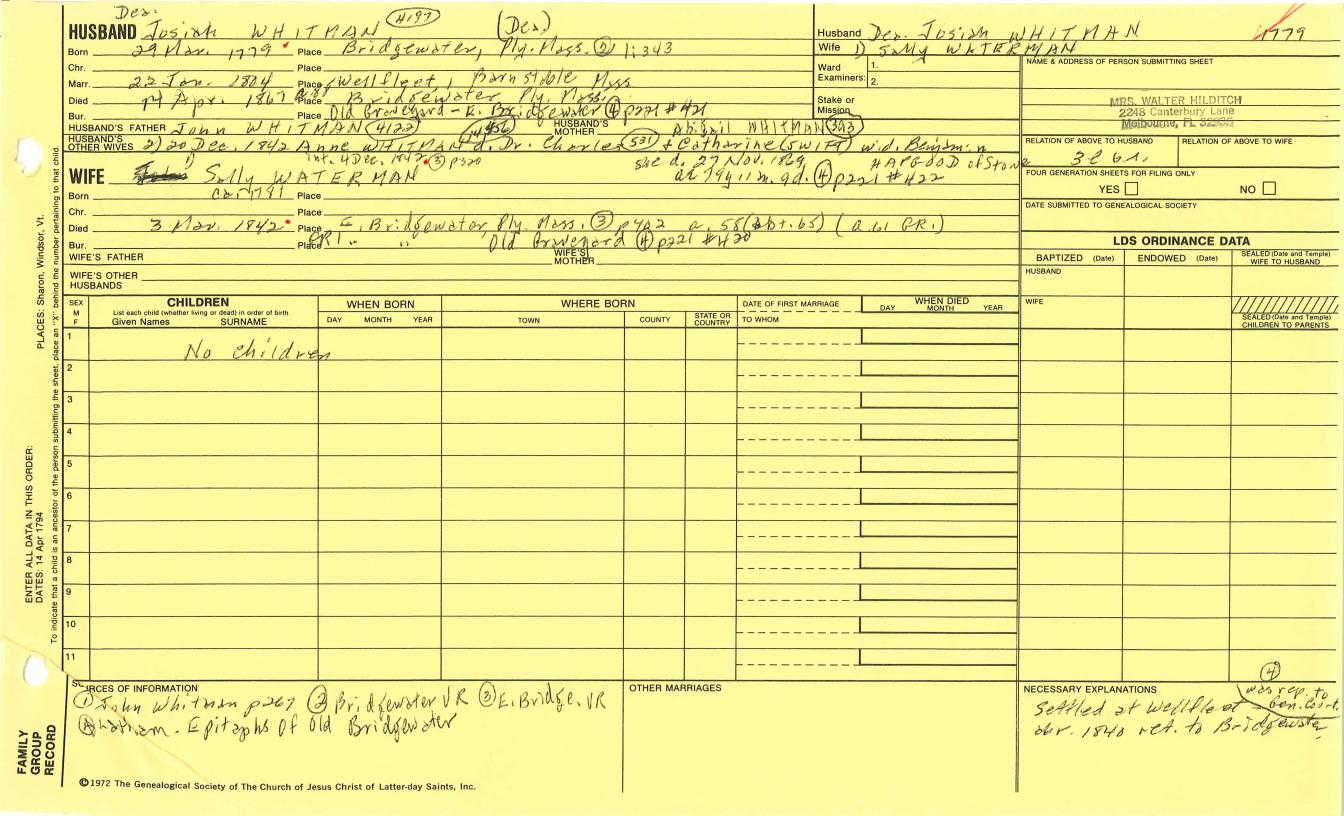 Dea.
HUSBAND Josiah WHITMAN 4197 (Dea)
Born 29 Mar. 1779 Place Bridgewater, Ply. Mass. ② 1:343
Chr. Place
Marr. 22 Jan. 1804 Place Wellfleet, Barnstable Mass
Died 14 Apr. 1867 Place Bridgewater, Ply. Mass.
Bur. Place Old Graveyard - E. Bridgewater ④ p221 #421
HUSBAND'S FATHER John WHITMAN 4122 HUSBAND'S MOTHER Abigail WHITMAN 343
HUSBAND'S OTHER WIVES 2) 20 Dec. 1842 Anne WHITMAN d. Dr. Charles 531 & Catharine (SWIFT) wid. Benjamin
int. 4 Dec. 1842 ③ p320 she d. 27 Nov. 1869 HAPGOOD of Stowe
1) at 79y 11m. 9d. ④ p221 #422
WIFE Sally WATERMAN
Born Place
Chr. Place
Died 3 Mar. 1842 Place E. Bridgewater, Ply. Mass. ③ p402 a. 58 (abt. 65) (a 61 GR.)
Bur. Place GR1 " " Old Graveyard ④ p221 #420
WIFE'S FATHER WIFE'S MOTHER
WIFE'S OTHER HUSBANDS
Husband Dea. Josiah WHITMAN 1779
Wife 1) Sally WATERMAN
Ward Examiners: 1. 2.
Stake or Mission
NAME & ADDRESS OF PERSON SUBMITTING SHEET
MRS. WALTER HILDITCH
2248 Canterbury Lane
Melbourne, FL
RELATION OF ABOVE TO HUSBAND RELATION OF ABOVE TO WIFE
FOUR GENERATION SHEETS FOR FILING ONLY
YES NO
DATE SUBMITTED TO GENEALOGICAL SOCIETY
LDS ORDINANCE DATA
BAPTIZED (Date) ENDOWED (Date) SEALED (Date and Temple) WIFE TO HUSBAND
HUSBAND
WIFE
SEALED (Date and Temple) CHILDREN TO PARENTS
SEX M F CHILDREN WHEN BORN WHERE BORN DATE OF FIRST MARRIAGE WHEN DIED
List each child (whether living or dead) in order of birth
Given Names SURNAME DAY MONTH YEAR TOWN COUNTY STATE OR COUNTRY TO WHOM DAY MONTH YEAR
1 No children
2
3
4
5
6
7
8
9
10
11
SOURCES OF INFORMATION
① John Whitman p267 ② Bridgewater VR ③ E. Bridge. VR
④ Latham. Epitaphs of Old Bridgewater
OTHER MARRIAGES
NECESSARY EXPLANATIONS
④ was rep. to Gen. Court.
Settled at Wellfleet
abr. 1840 ret. to Bridgewater
©1972 The Genealogical Society of The Church of Jesus Christ of Latter-day Saints, Inc.
FAMILY GROUP RECORD
ENTER ALL DATA IN THIS ORDER:
DATES: 14 Apr 1794 PLACES: Sharon, Windsor, Vt.
To indicate that a child is an ancestor of the person submitting the sheet, place an "X" behind the number pertaining to that child.